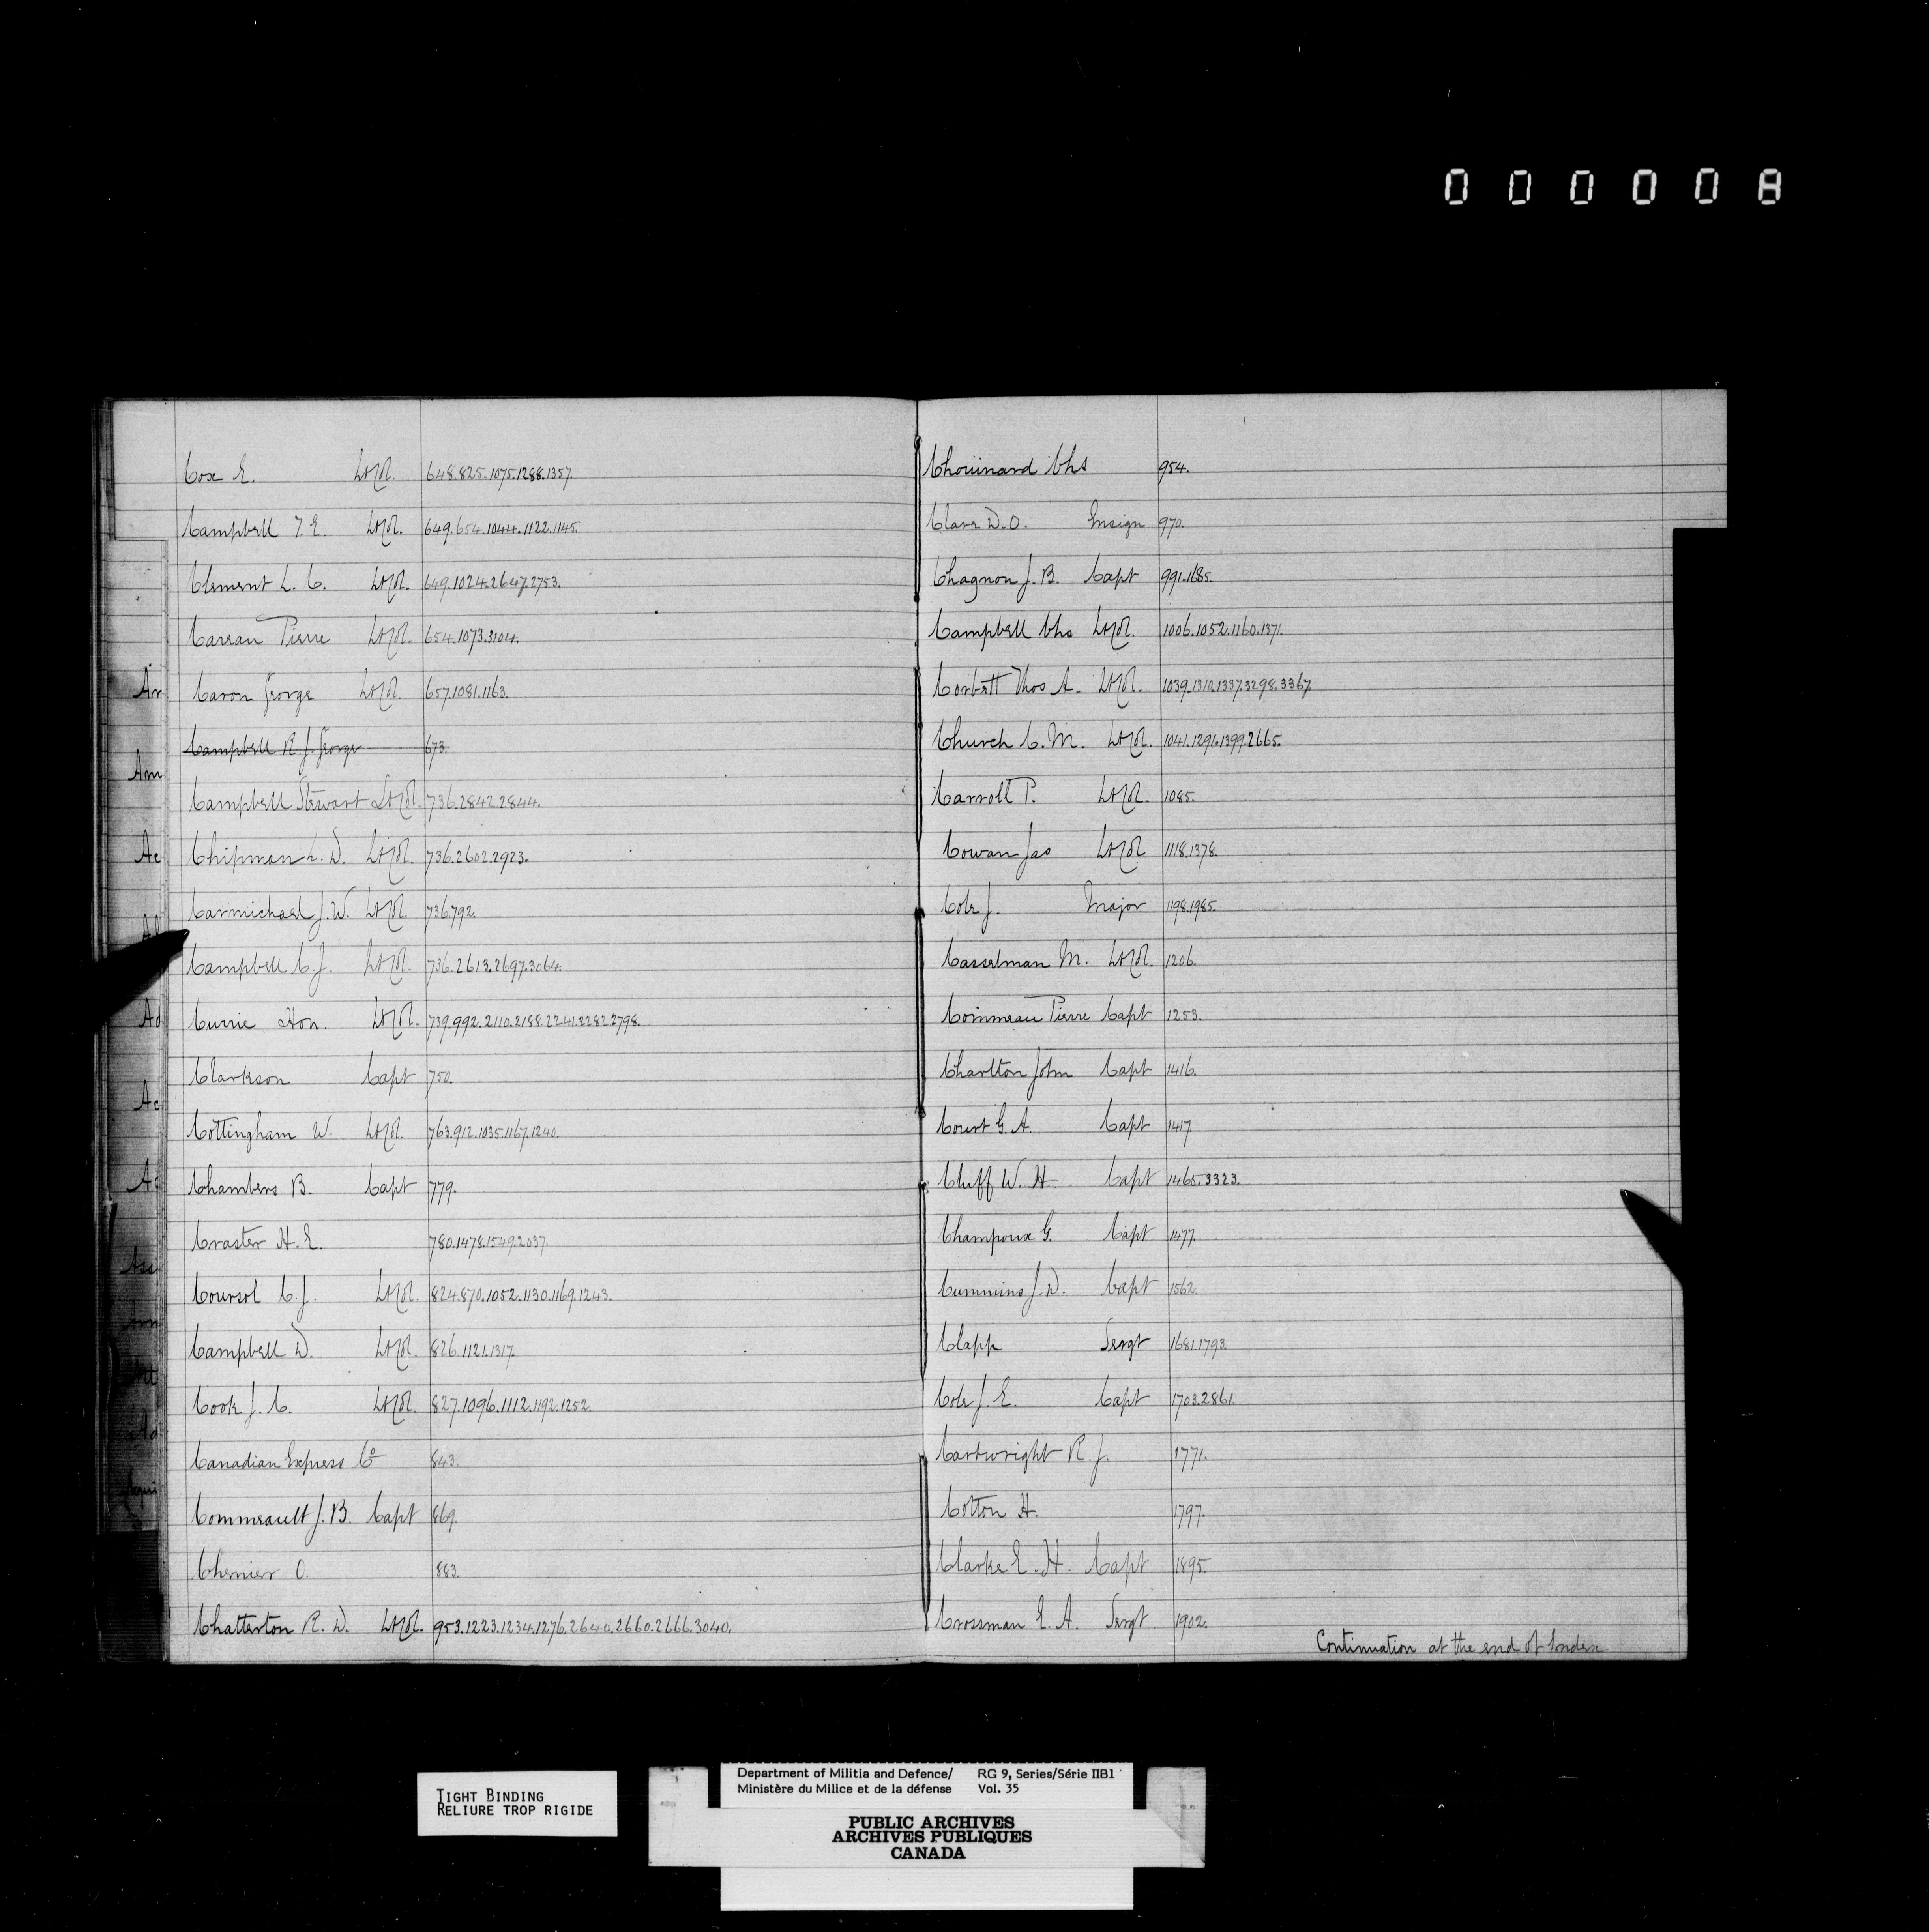 000008
Cox E. Lt Col. 648.825.1075.1288.1357.
Campbell T. E. Lt Col. 649.654.1044.1122.1145.
Clement L. C. Lt Col. 649.1024.2647.2753.
Careau Pierre Lt Col. 654.1073.3104.
Caron George Lt Col. 657.1081.1163.
Campbell R. J. George 673.
Campbell Stewart Lt Col. 736.2842.2844.
Chipman L. D. Lt Col. 736.2602.2923.
Carmichael J. W. Lt Col. 736.792.
Campbell C. J. Lt Col. 736.2613.2697.3064.
Currie Hon. Lt Col. 739.992.2110.2188.2241.2282.2798.
Clarkson Capt 750.
Cottingham W. Lt Col. 763.912.1035.1167.1240.
Chambers B. Capt 779.
Craster H. E. 780.1478.1549.2037.
Coursol C. J. Lt Col. 824.870.1052.1130.1169.1243.
Campbell D. Lt Col. 826.1121.1317.
Cook J. C. Lt Col. 827.1096.1112.1192.1252.
Canadian Express Co 843.
Commeault J. B. Capt 869.
Chenier O. 883.
Chatterton R. D. Lt Col. 953.1223.1234.1276.2640.2660.2666.3040.
Chouinard Chs 954.
Clare D. O. Ensign 970.
Chagnon J. B. Capt 991.1685.
Campbell Chs Lt Col. 1006.1052.1160.1371.
Corbett Thos A. Lt Col. 1039.1310.1337.3298.3367.
Church C. M. Lt Col. 1041.1291.1399.2665.
Carroll P. Lt Col. 1085.
Cowan Jas Lt Col 1118.1378.
Cole J. Major 1198.1985.
Casselman M. Lt Col. 1206.
Commeau Pierre Capt 1253.
Charlton John Capt 1416.
Court G. A. Capt 1417.
Cluff W. H. Capt 1465.3323.
Champoux G. Capt 1477.
Cummins J. D. Capt 1562.
Clapp Sergt 1681.1793.
Cole J. E. Capt 1703.2861.
Cartwright R. J. 1771.
Cotton H. 1797.
Clarke E. H. Capt 1895.
Crossman E. A. Sergt 1902.
Continuation at the end of Index
Ar
Am
Ac
Ad
Ac
Ass
TIGHT BINDING
RELIURE TROP RIGIDE
Department of Militia and Defence/ RG 9, Series/Série IIB1
Ministère du Milice et de la défense Vol. 35
PUBLIC ARCHIVES
ARCHIVES PUBLIQUES
CANADA